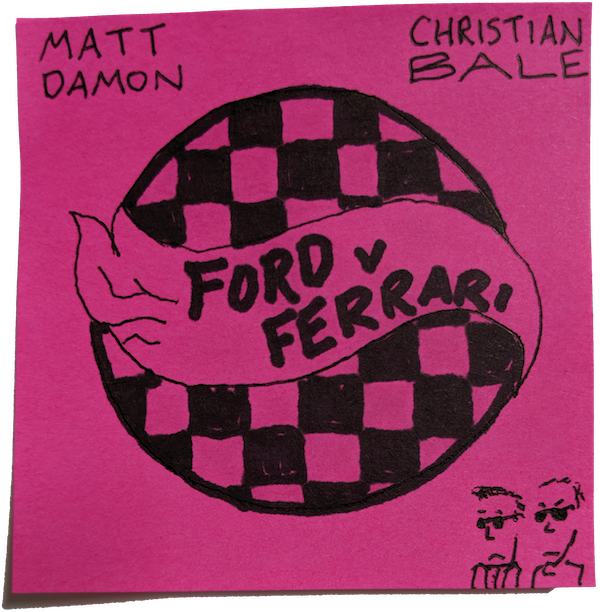 MATT
DAMON
CHRISTIAN
BALE
FORD V
FERRARI